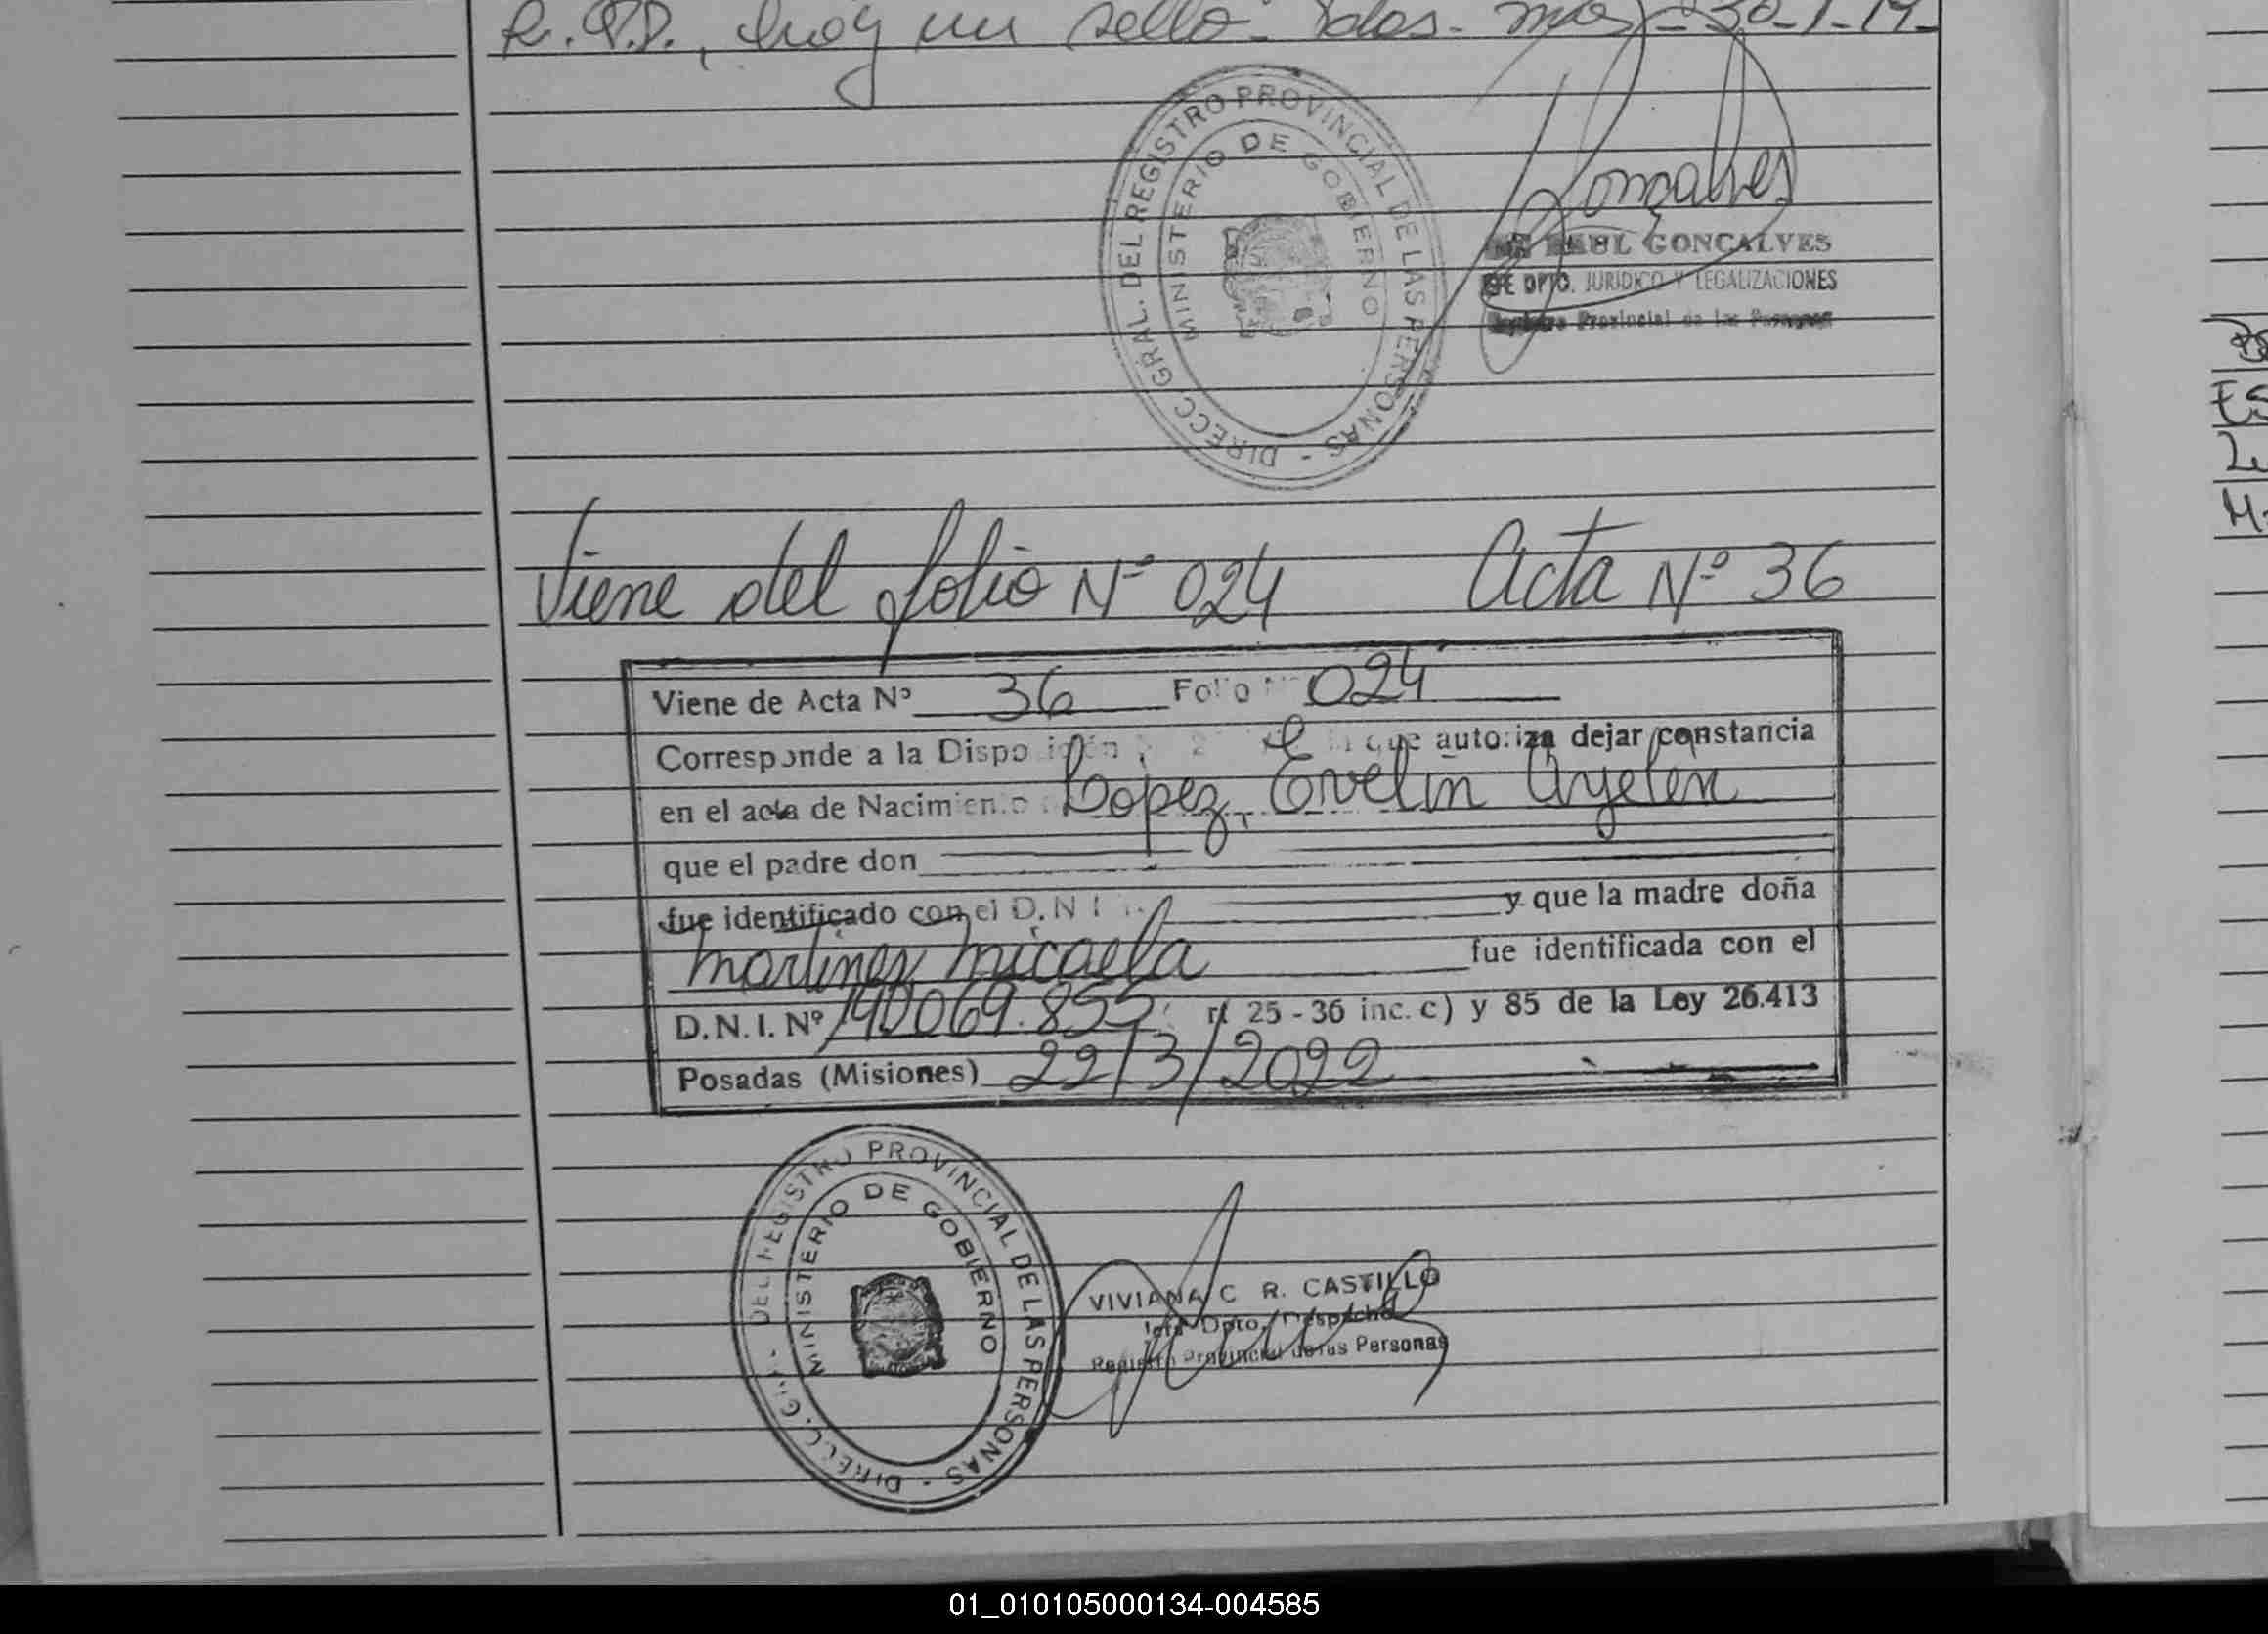 hay un sello
DIRECC GRAL. DEL REGISTRO PROVINCIAL DE LAS PERSONAS -
MINISTERIO DE GOBIERNO
Gonçalves
RAUL GONÇALVES
DPTO. JURIDICO Y LEGALIZACIONES
Registro Provincial de las Personas
Viene del folio Nº 024 Acta Nº 36
Viene de Acta Nº 36 Folio Nº 024
Corresponde a la Disposición que autoriza dejar constancia
en el acta de Nacimiento Lopez, Evelin Ayelen
que el padre don
fue identificado con el D.N.I. y que la madre doña
Martinez, Micaela fue identificada con el
D.N.I. Nº 40069.855 25 - 36 inc. c) y 85 de la Ley 26.413
Posadas (Misiones) 22/3/2022
DIRECC. GRAL. DEL REGISTRO PROVINCIAL DE LAS PERSONAS -
MINISTERIO DE GOBIERNO
VIVIANA C R. CASTILLO
Jefa Dpto. Despacho
Registro Provincial de las Personas
01_010105000134-004585